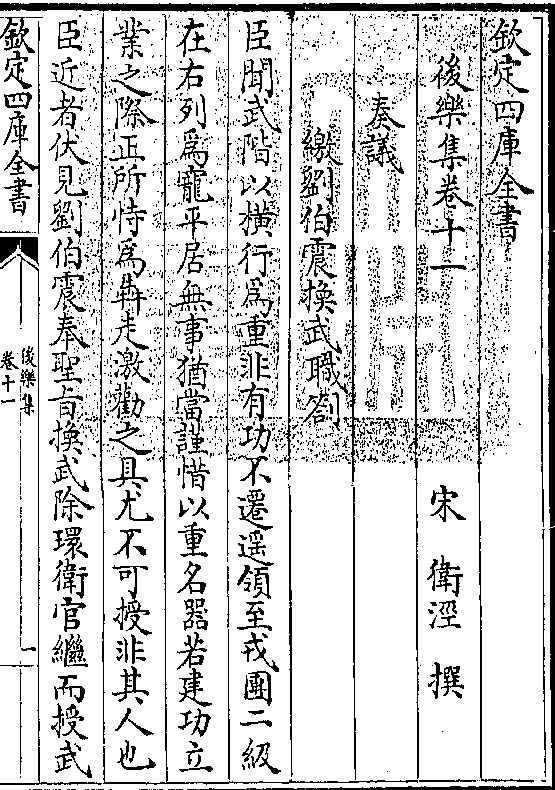 欽定四庫全書
後樂集卷十一
宋 衛涇 撰
奏議
繳劉伯震換武職劄
臣聞武階以橫行為重非有功不遷遥領至戎團二級
在右列為寵平居無事猶當謹惜以重名器若建功立
業之際正所恃為犇走激勸之具尤不可授非其人也
臣近者伏見劉伯震奉聖旨換武除環衛官繼而授武
欽定四庫全書
後樂集
卷十一
一